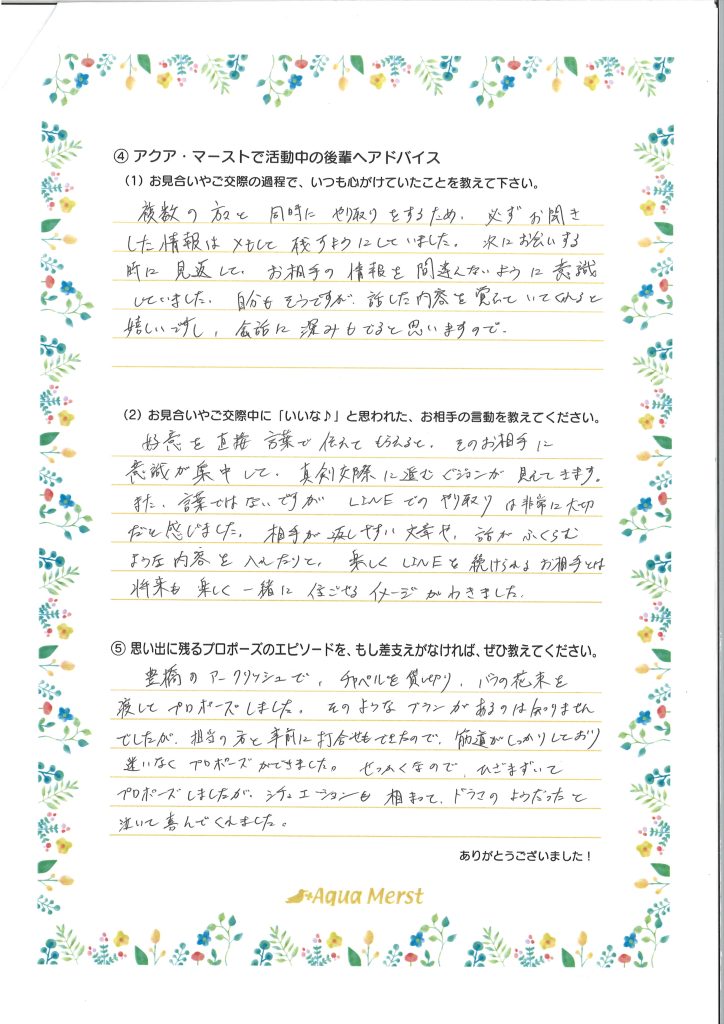 ④ アクア・マーストで活動中の後輩へアドバイス
(1) お見合いやご交際の過程で、いつも心がけていたことを教えて下さい。
複数の方と 同時に やり取りをするため、必ず お聞き
した情報は メモして 残すようにしていました。次にお会いする
時に 見返して、お相手の 情報を 間違えないように 意識
していました。自分も そうですが、話した内容を 覚えて いてくれると
嬉しいですし、会話に 深みもでると思いますので。
(2) お見合いやご交際中に「いいな♪」と思われた、お相手の言動を教えてください。
好意を 直接 言葉で 伝えて もらえると、そのお相手に
意識が集中して、真剣交際に進む ビジョンが 見えてきます。
また、言葉ではないですが LINEでの やり取り は非常に大切
だと感じました。相手が 返しやすい 文章や、話が ふくらむ
ような 内容を 入れたりと、楽しく LINEを 続けられる お相手とは
将来も 楽しく 一緒に 過ごせる イメージが わきました。
⑤ 思い出に残るプロポーズのエピソードを、もし差支えがなければ、ぜひ教えてください。
豊橋の アークリッシュで、チャペルを 貸し切り、バラの花束を
渡して プロポーズしました。そのような プランが あるのは 知りません
でしたが、担当の方と 事前に 打合せもできたので、筋道がしっかりしており
迷いなく プロポーズができました。せっかくなので、ひざまずいて
プロポーズしましたが、シチュエーションも 相まって、ドラマの ようだったと
泣いて 喜んでくれました。
ありがとうございました！
Aqua Merst